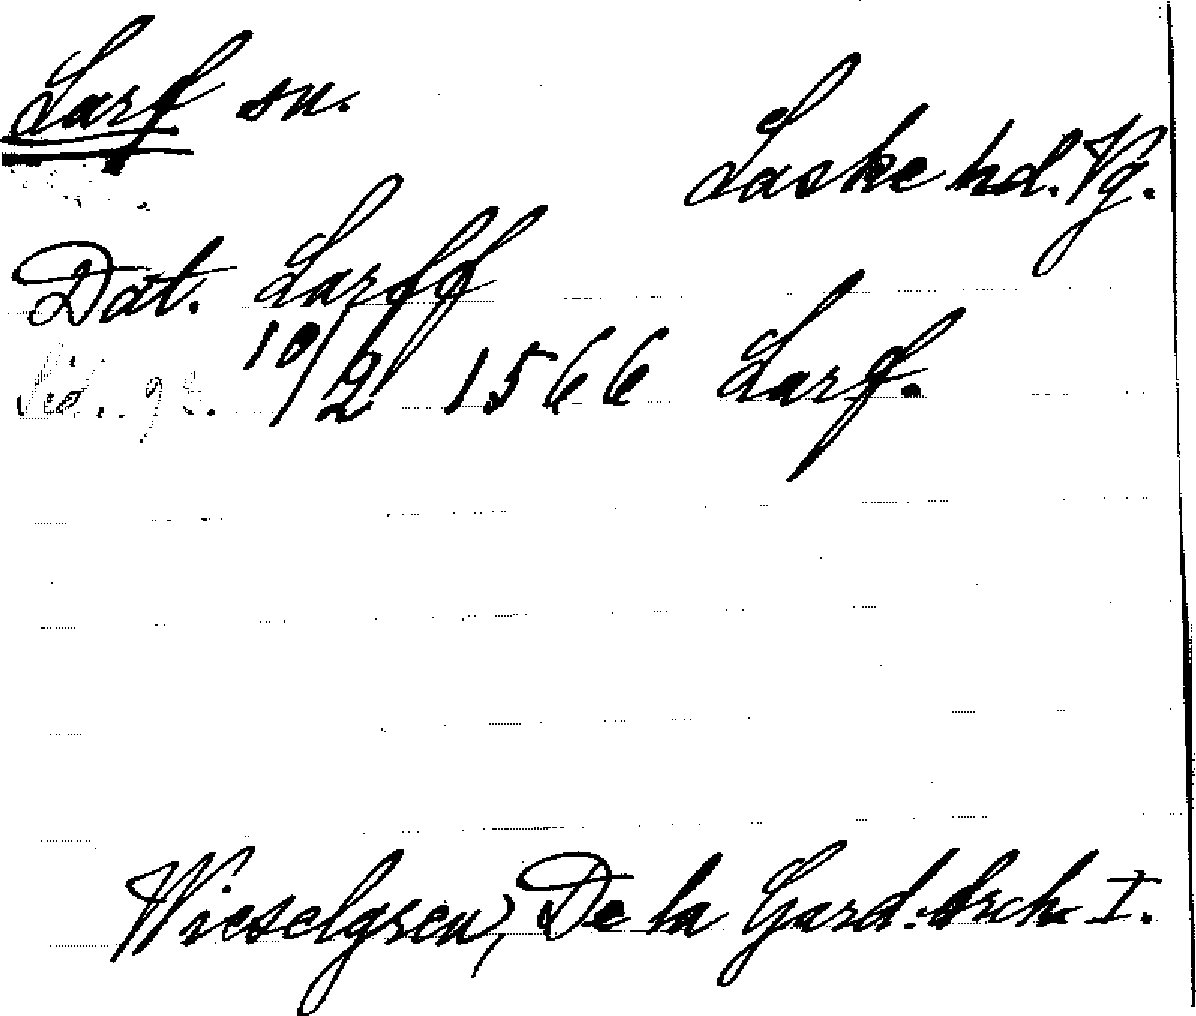 Larf sn.
Laske hd. Vg.
Dat. Larff
10/2 1566 Larf.
Sid. 93.
Wieselgren, De la Gard. Arch. I.